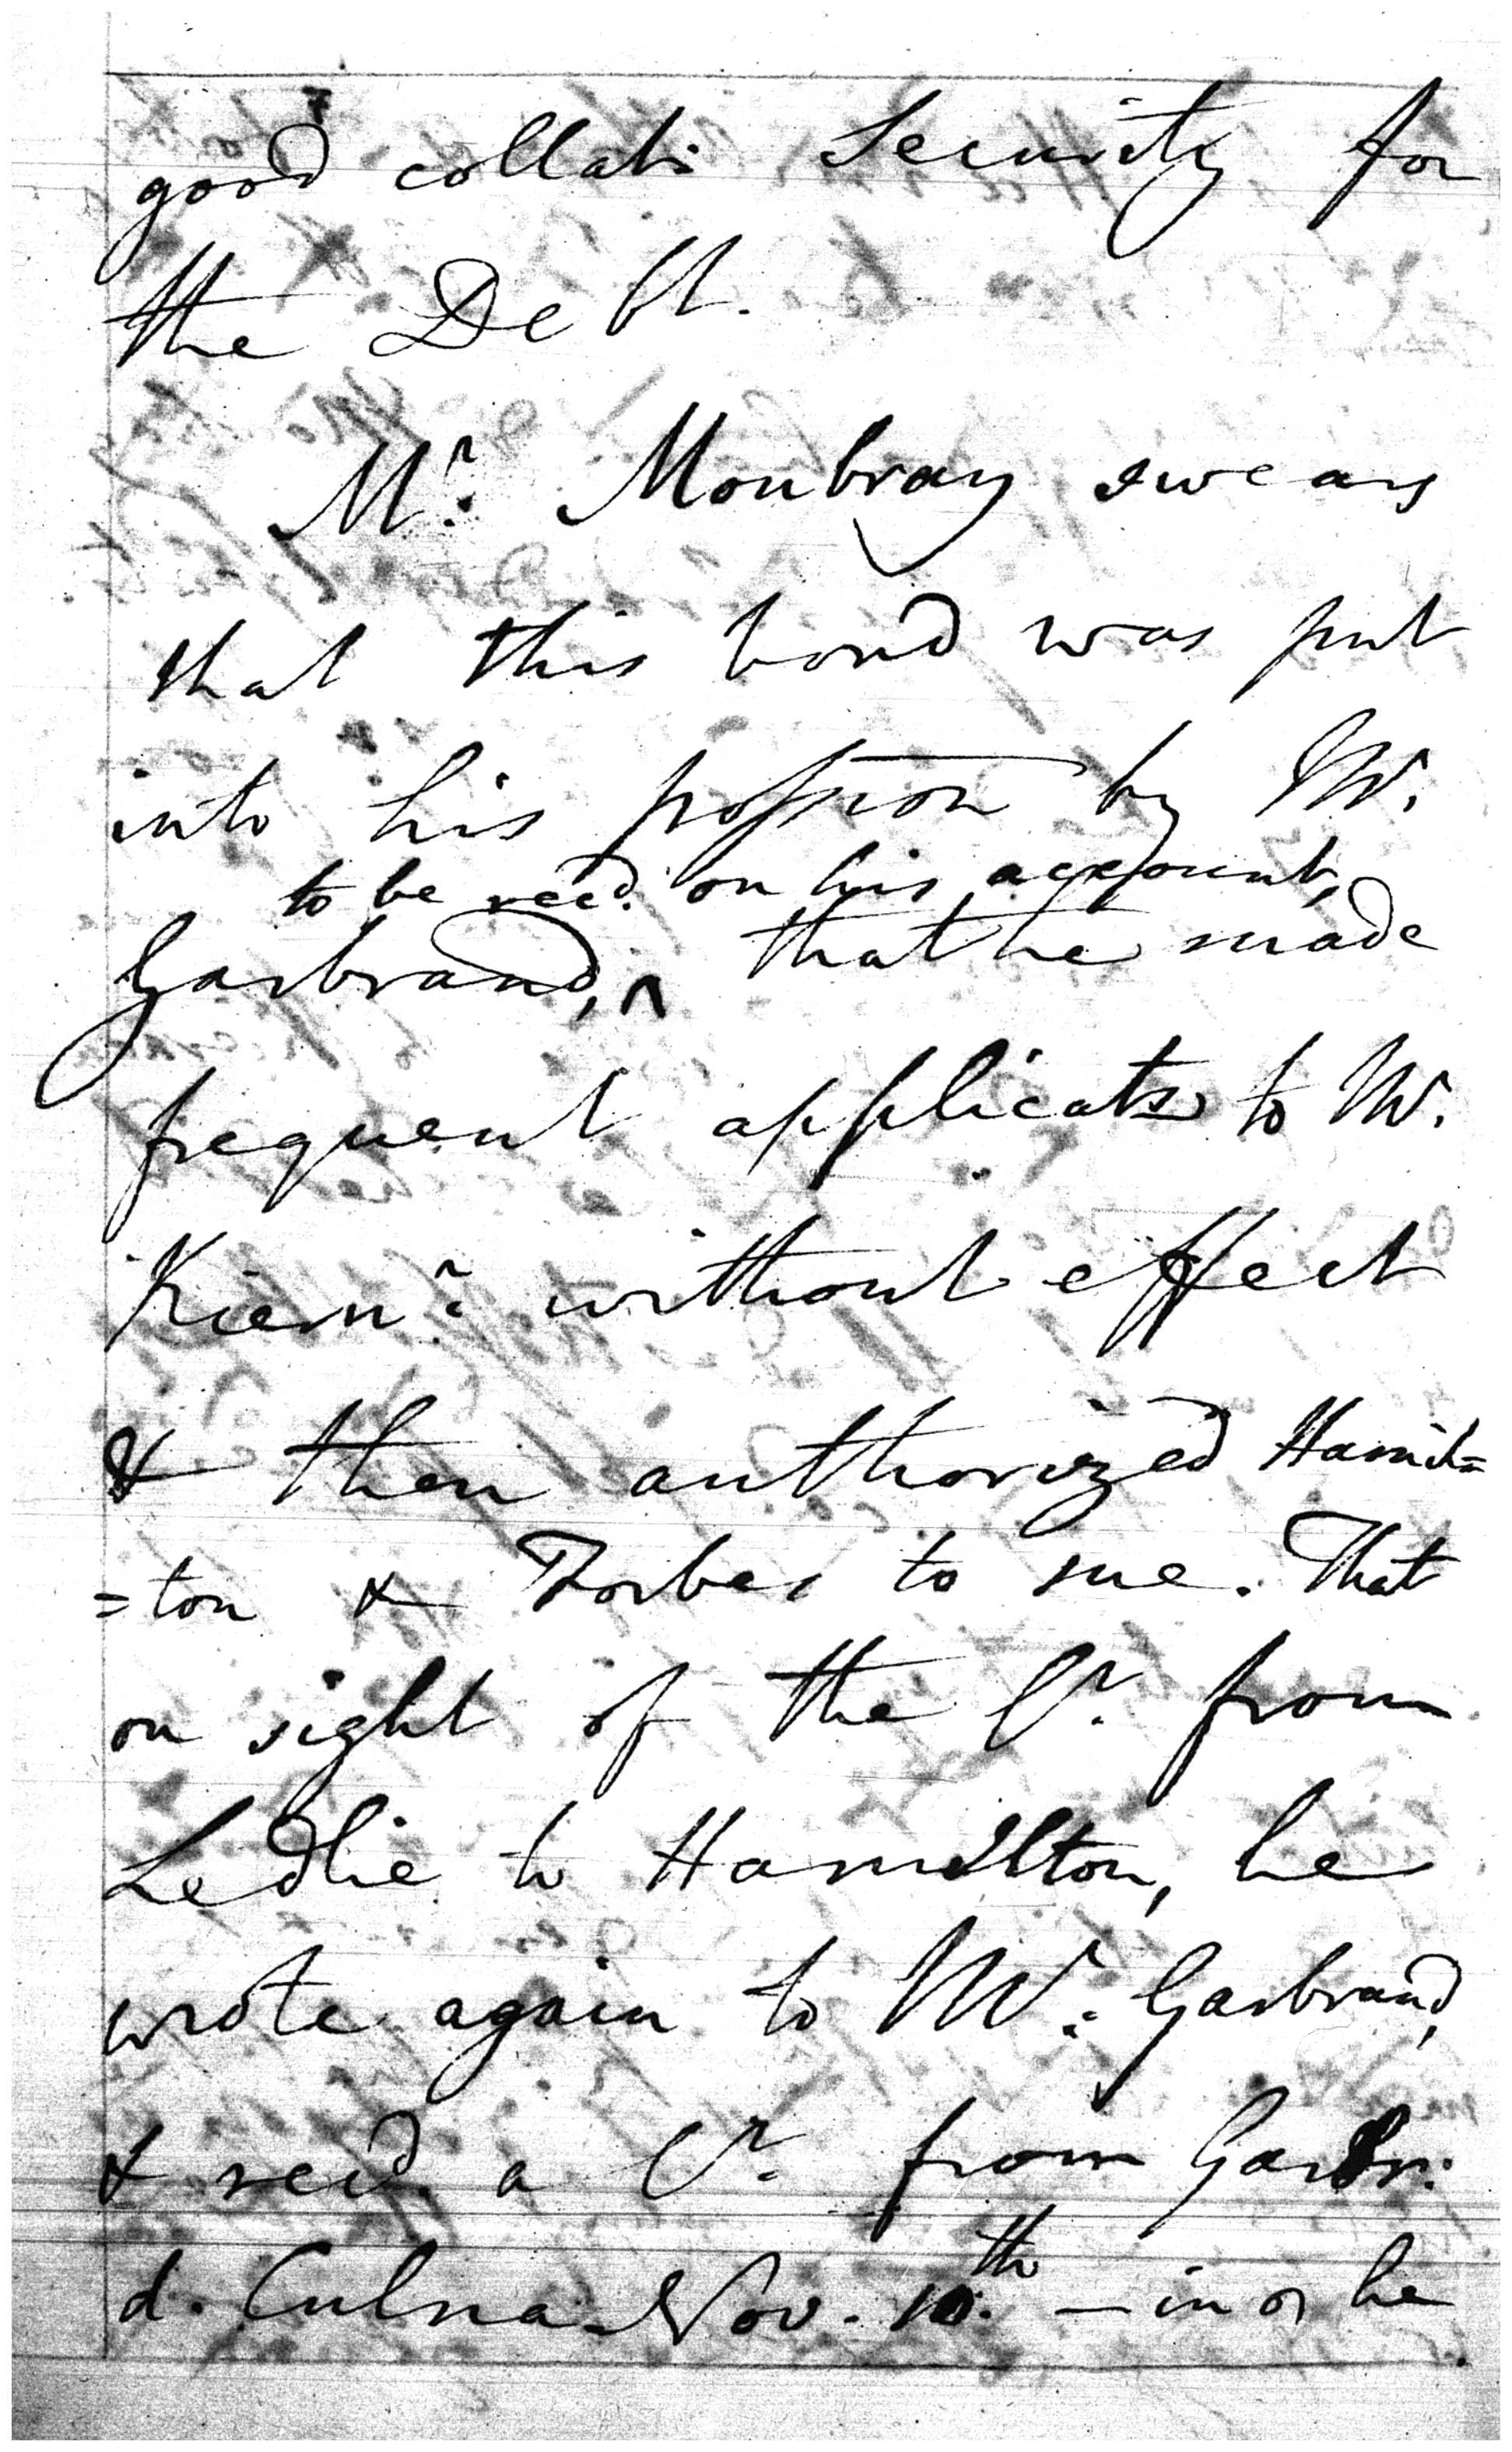 good collat: Security for
the Debt.
Mr. Monbray swears
that this bond was put
into his possion by Mr.
to be recd. on his account,
Garbrand, ^ that he made
frequent applicats to Mr.
Kiern: without effect
& then authorized Hamil=
=ton & Forbes to sue. That
on sight of the lr. from
Ledlie to Hamilton, he
wrote again to Mr. Garbrand,
& recd. a lr. from Garbr:
d. Culna Nov. 10.th — in
he